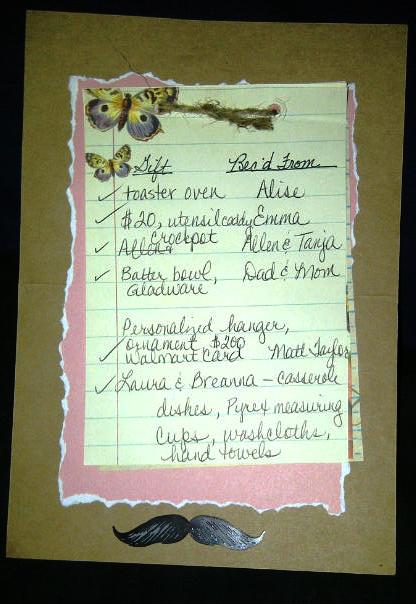 Gift Rec'd From
✓ toaster oven Alise
✓ $20, utensil caddy Emma
Crockpot
✓ Allen & Allen & Tanja
✓ Batter bowl, Dad & Mom
Gladware
Personalized hanger,
ornament $200
✓ Walmart card Matt Taylor
✓ Laura & Breanna – casserole
dishes, Pyrex measuring
cups, washcloths,
hand towels